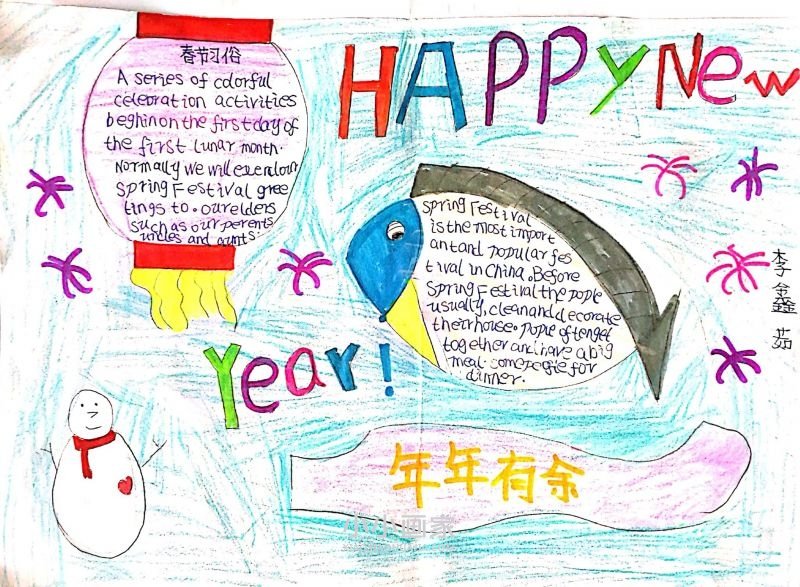 春节习俗
A series of colorful
celebration activities
beghin on the first day of
the first lunar month.
Normally we will
Spring Festival gree
tings to. our elders
such as our parents
uncles and aunts.
HAPPY New
Spring Festival
is the most import
ant and popular fes
tival in China. Before
Spring Festival the pople
usually, clean and decorate
their house. pople often get
together and have a big
meal. for
dinner.
李鑫茹
Year!
年年有余
小小画家